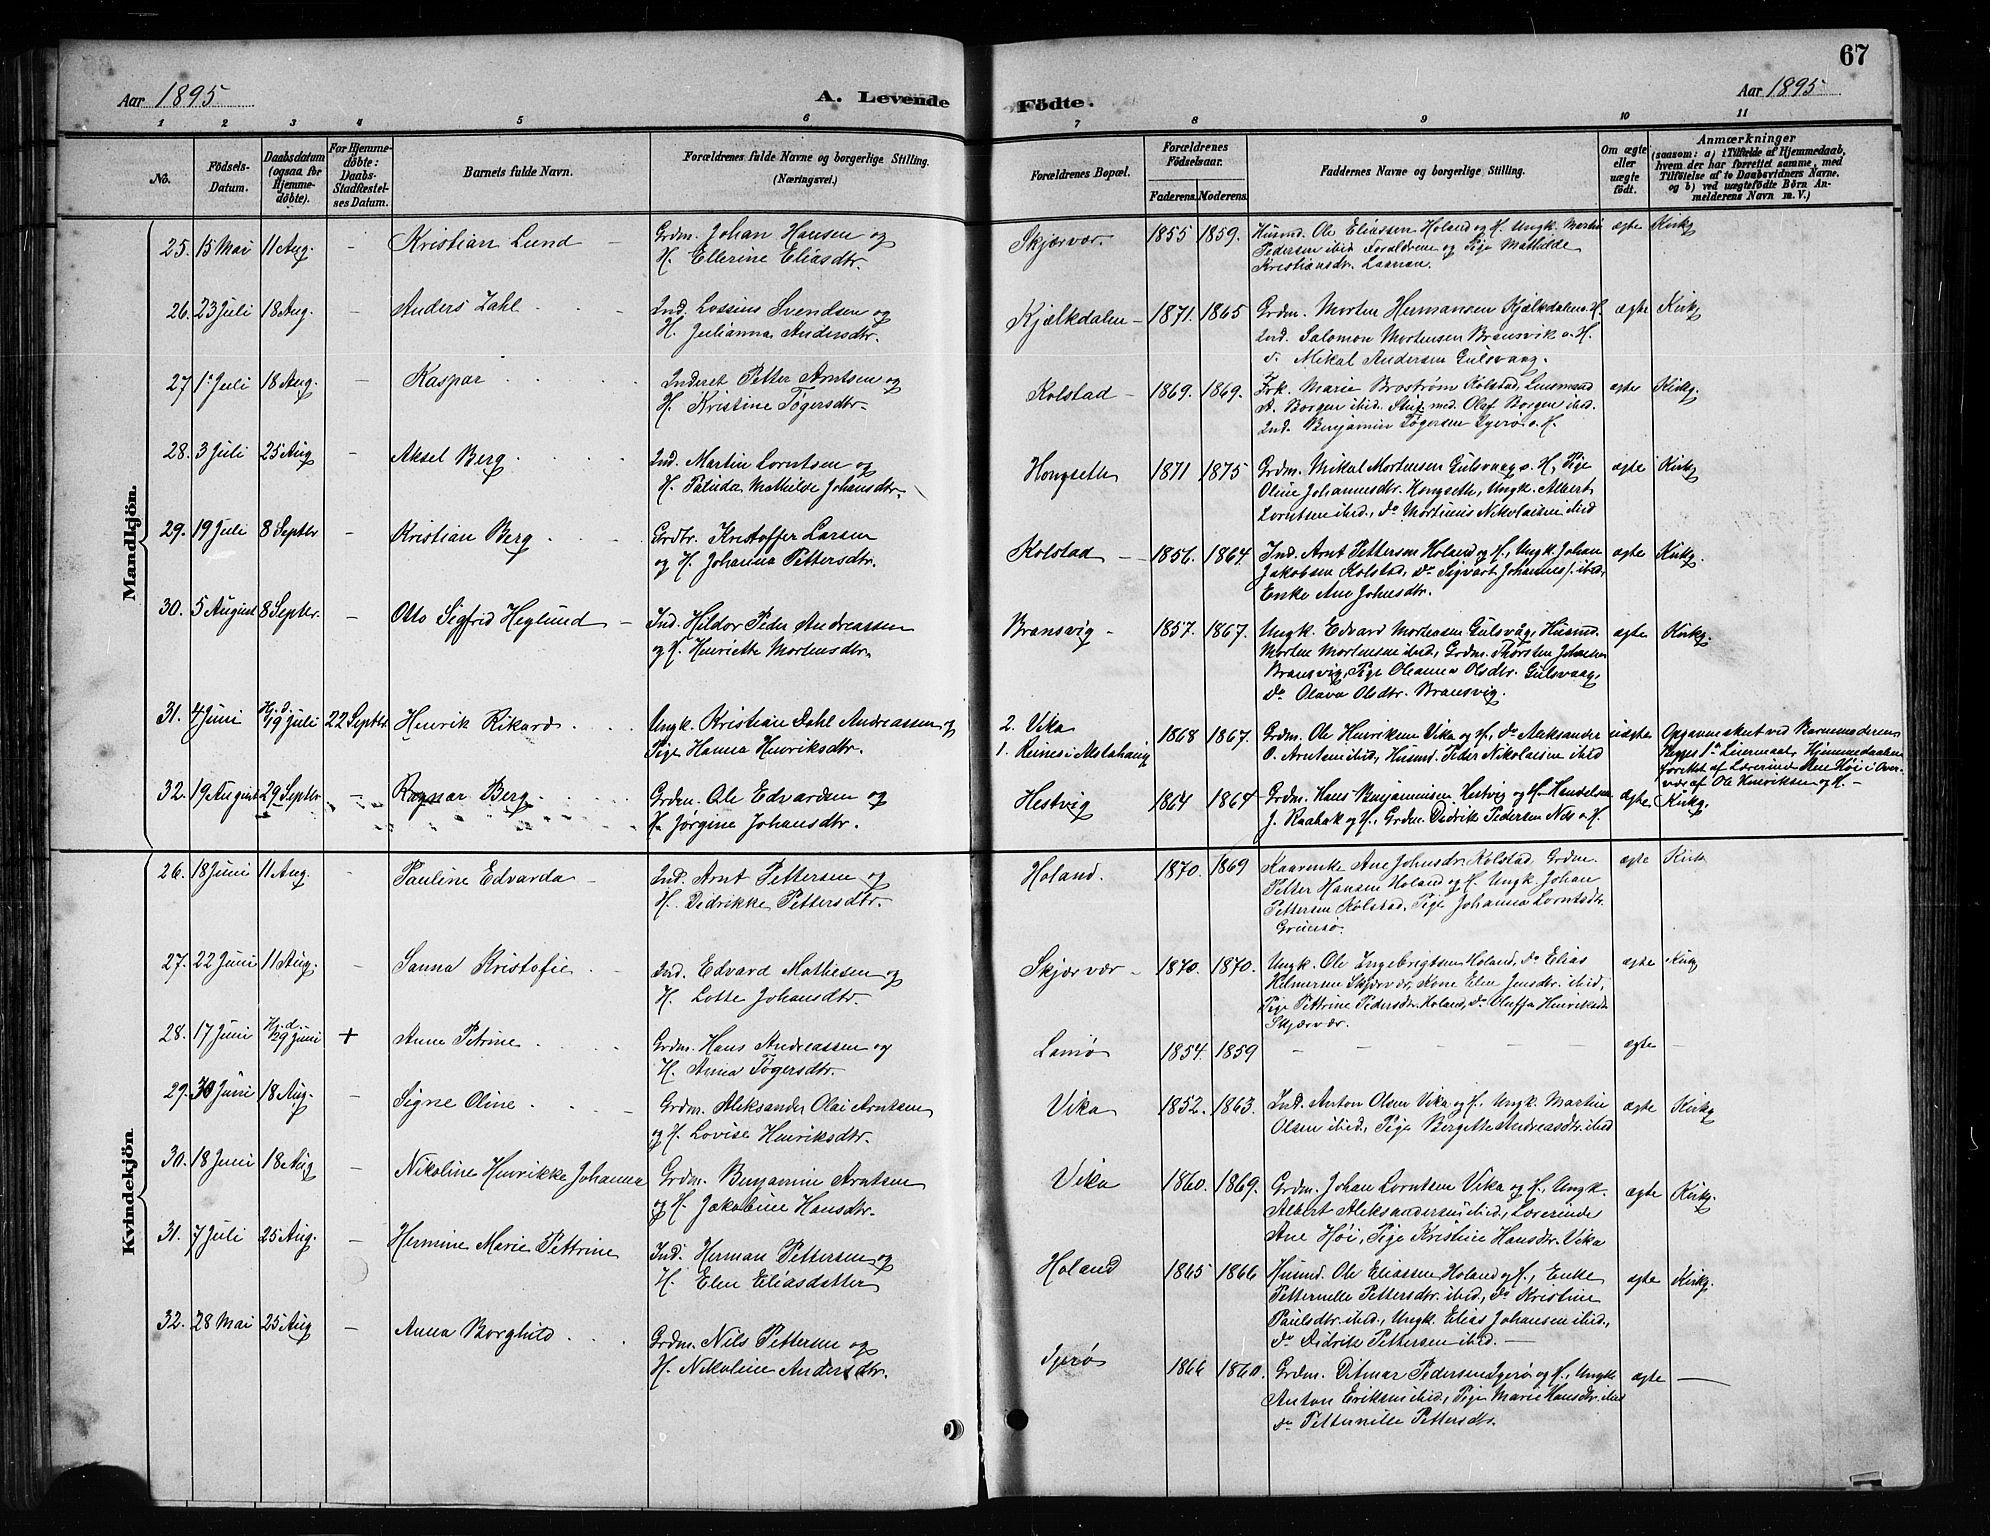 67
Aar 1895
A. Levende Födte.
Aar 1895
1 2 3 4 5 6 7 8 9 10 11
No.
Födsels-Datum.
Daabsdatum (ogsaa for Hjemme-döbte).
For Hjemme-döbte: Daabs-Stadfæstel-ses Datum.
Barnets fulde Navn.
Forældrenes fulde Navne og borgerlige Stilling.
(Næringsvei.)
Forældrenes Bopæl.
Forældrenes Födselsaar.
Faderens. Moderens.
Faddernes Navne og borgerlige Stilling.
Om ægte eller uægte födt.
Anmærkninger
(saasom: a) i Tilfælde af Hjemmedaab, hvem der har forrettet samme, med Tilföielse af to Daabsvidners Navne. og b) ved uægtefödte Börn An-melderens Navn m. V.)
Mandkjön.
25. 15 Mai 11 Aug. - Kristian Lund - Grdm. Johan Hansen og
H. Ellerine Eliasdtr.
Skjærvær. 1855 1859. Husmd. Ole Eliassen Holand og H. Ungk. Martin
Pedersen ibid Forældrene og Pige Mathilde
Kristiansdr. Laanan.
ægte Kirkg
26. 23 Juli 18 Aug. - Anders Zahl . . Ind. Lossius Svendsen og
H. Julianna Andersdtr.
Kjælkdalen - 1871. 1865 Grdm. Morten Hermansen Kjælkdalen o. H.
Ind. Salomon Mortensen Bransvik o. H.
do Mikal Andersen Gulsvaag.
ægte Kirkg
27 1. Juli 18 Aug. - Kaspar . . . . Inderst Petter Arntsen og
H. Kristine Tøgersdtr.
Kolstad - 1869. 1869. Frk. Marie Brostrøm Kolstad, Lensmand
A. Borgen ibid. Stud. med. Olaf Borgen ibid.
Ind. Benjamin Tøgersen Igerø o. H.
ægte Kirkg.
28. 3 Juli 25 Aug - Aksel Berg . . . Ind. Martin Lorntsen og
H. Paluda Mathilde Johansdtr.
Hongseth 1871 1875 Grdm. Mikal Mortensen Gulsvaag o. H, Pige
Oline Johannesdtr. Hongseth, Ungk. Albert
Lorntsen ibid, do Mortinus Nikolaisen ibid
ægte Kirkg
29. 19 Juli 8 Septbr - Kristian Berg . . Grdbr. Kristoffer Larsen
og H. Johanna Pettersdtr.
Kolstad - 1856. 1864. Ind. Arnt Pettersen Holand og H., Ungk. Johan
Jakobsen Kolstad, do Sigvart Johannes/. ibid,
Enke Ane Johnsdtr.
ægte Kirkg.
30. 5 August 8 Septbr. - Otto Sigfrid Heglund - Ind. Hildor Peder Andreassen
og H. Henriette Mortensdtr.
Bransvig - 1857. 1867. Ungk. Edvard Mortensen Gulsvåg, Husmd.
Morten Mortensen ibid, Grdm. Thorsten Johnsen
Bransvig, Pige Oleanna Olsdtr. Gulsvaag,
do Olava Olsdtr. Bransvig.
ægte Kirkg.
31. 4 Juni Hj. d. 19 Juli 22 Septbr. Henrik Rikard . . Ungk. Kristian Dahl Andreassen og
Pige Hanna Henriksdtr.
2. Vika
1. Reines i Alstahaug
1868 1867. Grdm. Ole Henriksen Vika og H, do Aleksander
O. Arntsen ibid, Husmd. Peder Nikolaisen ibid
uægte Opgavesaket ved Barnemoderen
Begges 1ste Leiermaal, Hjemmedaaben
forrettet af Lærerinde Ane Høi i Over-
vær af Ole Henriksen og H. -
32. 19 August 29 Septbr - Ragnar Berg . . Grdm. Ole Edvardsen og
H. Jørgine Johansdtr.
Hestvig 1864 1864 Grdm. Hans Benjaminsen Hestvig og H. Handelsm.
J. Kaabak og H, Grdm. Didrik Pedersen Nes o. H.
ægte Kirkg.
Kvindekjön
26. 18 Juni 11 Aug. - Pauline Edvarda - Ind. Arnt Pettersen og
H. Dedrikke Pettersdtr.
Holand. 1870. 1869 Kaarenke Ane Johnsdr. Kolstad, Grdm.
Petter Hansen Holand og H. Ungk. Johan
Pettersen Kolstad, Pige Johanna Lorntsdtr.
Grimsø.
ægte Kirk
27. 22 Juni 11 Aug. - Sanna Kristofie . Ind. Edvard Mathiesen og
H. Lotte Johansdtr.
Skjærvær - 1870. 1870. Ungk. Ole Ingebrigtsen Holand, do Elias
Helmersen Skjærvær, Kone Elen Jensdtr. ibid,
Pige Pettrine Pedersdtr. Holand, do Oluffa Henriksdtr
Skjærvær.
ægte Kirkg
28. 17 Juni Hj. d. 29 Juni + Anne Petrine . . . Grdm. Hans Andreassen og
H. Anna Tøgersdtr.
Lamø 1854. 1859 - - - - - ægte -
29. 30 Juni 18 Aug. - Signe Oline . . Grdm. Aleksander Olai Arntsen
og H. Lovise Henriksdtr.
Vika 1852. 1863. Ind. Anton Olsen Vika og H, Ungk. Martin
Olsen ibid, Pige Bergitte Andreasdtr. ibid
ægte Kirkg
30. 18 Juni 18 Aug - Nikoline Henrikke Johanna Grdm. Benjamin Arntsen
og H. Jakobine Hansdtr.
Vika 1860. 1869. Grdm. Johan Lorntsen Vika og H, Ungk.
Albert Aleksandersen ibid, Lærerinde
Ane Høi, Pige Kristine Hansdtr. Vika
ægte Kirkg.
31. 7 Juli 25 Aug. - Hermine Marie Pettrine Ind. Herman Pettersen og
H. Elen Eliasdatter
Holand 1865 1866 Husmd. Ole Eliassen Holand og H, Enke
Petternille Pettersdtr. ibid, do Kristine
Paulsdtr. ibid, Ungk. Elias Johansen ibid,
do Didrik Pettersen ibid. -
ægte Kirkg.
32. 28 Mai 25 Aug - Anna Borghild . . Grdm. Nils Pettersen og
H. Nikoline Andersdtr.
Igerø 1866 1860. Grdm. Ditmar Pedersen Igerø og H, Ungk
Anton Eriksen ibid, Pige Marie Hansdtr. ibid
do Petternille Pettersdtr.
ægte -